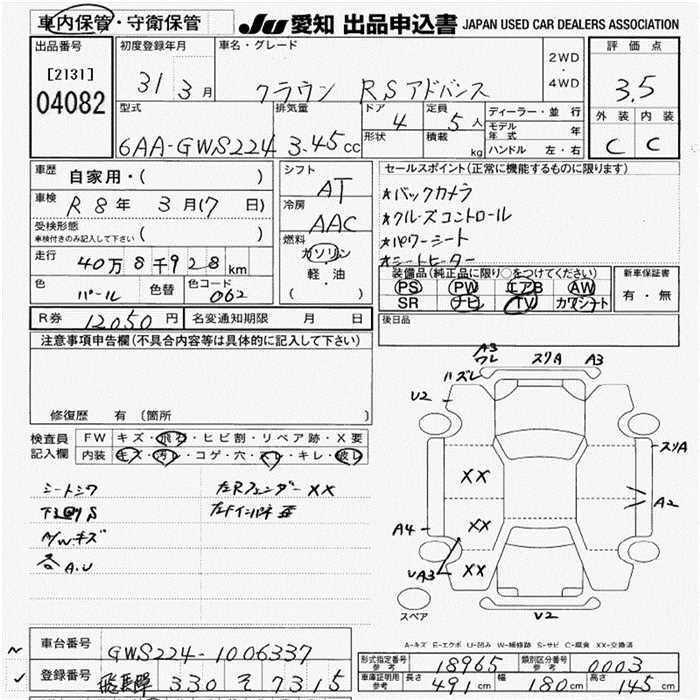 車内保管・守衛保管
JU 愛知 出品申込書 JAPAN USED CAR DEALERS ASSOCIATION
出品番号 初度登録年月 車名・グレード 2WD・4WD 評価点
[2131] 31年 3月 クラウン RSアドバンス 3.5
04082
型式 排気量 ドア 4 定員 5人 ディーラー・並行 外装 内装
6AA-GWS224 3.45cc 形状 積載 kg モデル年式 年 C C
ハンドル 左・右
車歴 自家用・( ) シフト AT セールスポイント(正常に機能するものに限ります)
車検 R8年 3月(7 日) 冷房 AAC *バックカメラ
受検形態 *クルーズコントロール
車検付きのみ記入して下さい ( ) 燃料 *パワーシート
走行 40万8千928km ガソリン *シートヒーター
軽・油
( )
色 パール 色替 色コード 062
装備品(純正品に限り○をつけてください) 新車保証書
PS PW エアB AW 有・無
SR ナビ TV カワシート
R券 12050円 名変通知期限 月 日 後日品
注意事項申告欄(不具合内容等は具体的に記入して下さい)
修復歴 有 (箇所
検査員記入欄 FW キズ・飛石・ヒビ割・リペア跡・X要
内装 キズ・汚レ・コゲ・穴・スレ・キレ・破レ
シートシワ 左Rフェンダー XX
A/Wキズ
各A.U
A3
ワレ スリA A3
ハズレ
U2
スリA
XX
A2
A4 XX
UA3 XX
スペア U2
A-キズ E-エクボ U-凹み W-補修跡 S-サビ C-腐食 XX-交換済
車台番号 GWS224-1006337
登録番号 330 7315
形式指定番号 参考 18965 類別区分番号 参考 0003
車庫証明用 参考 長さ 491cm 幅 180cm 高さ 145cm